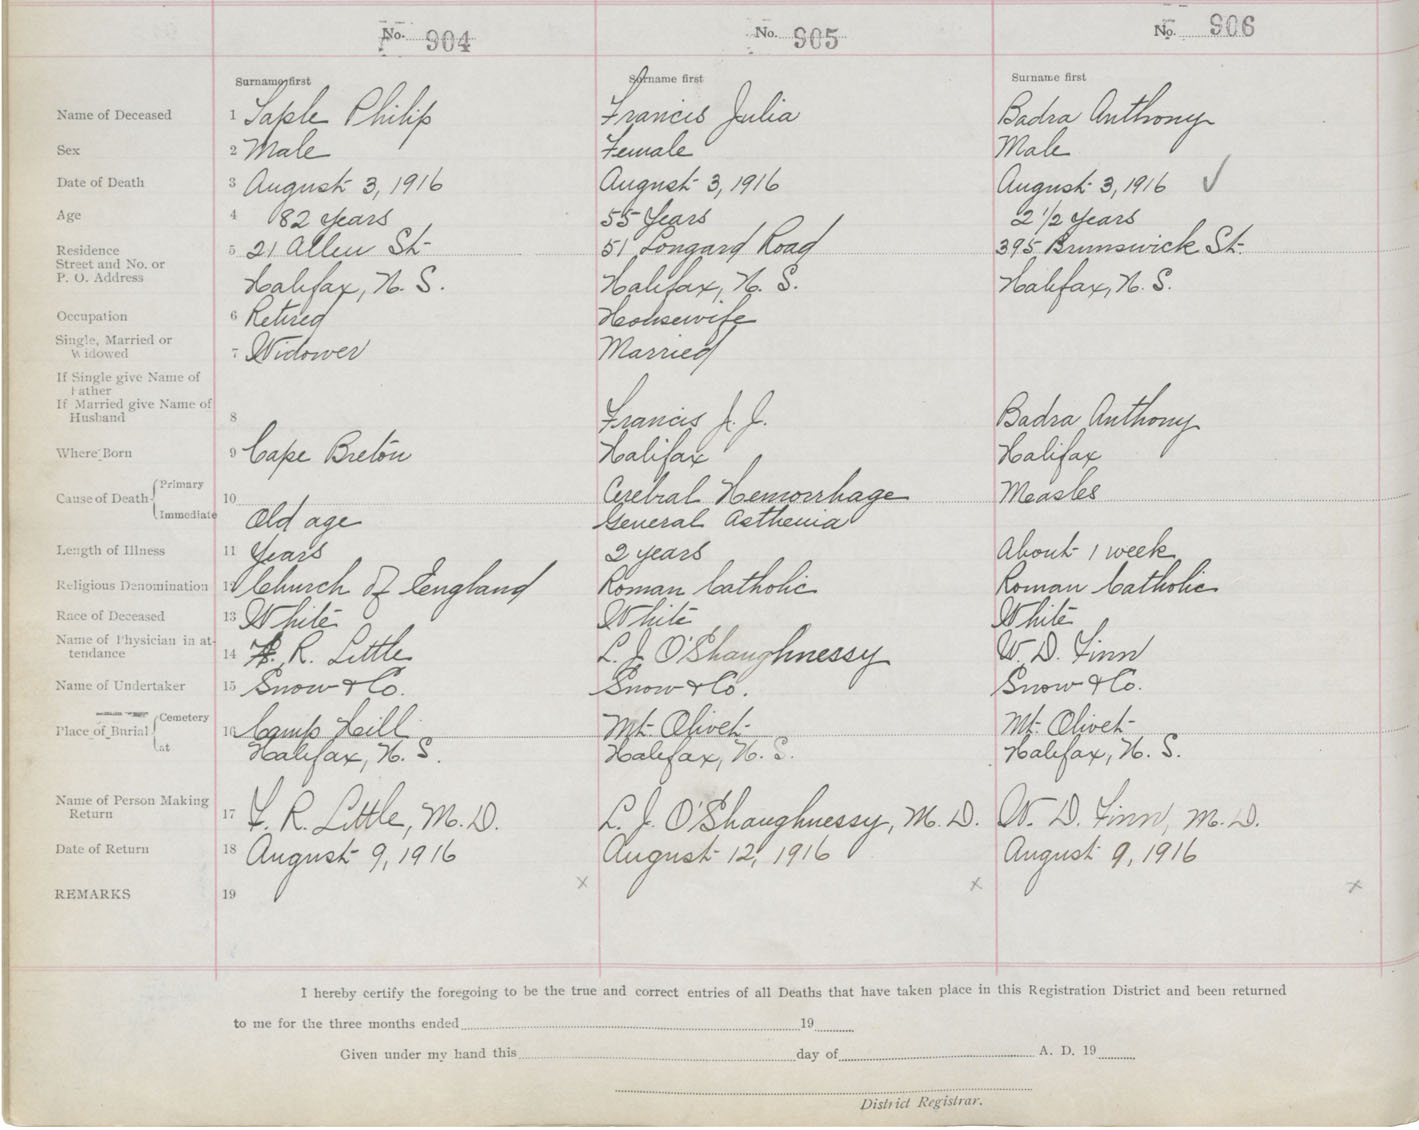 No. 904 No. 905 No. 906
Surname first Surname first Surname first
Name of Deceased 1 Saple Philip Francis Julia Badra Anthony
Sex 2 Male Female Male
Date of Death 3 August 3, 1916 August 3, 1916 August 3, 1916 ✓
Age 4 82 years 55 Years 2 1/2 years
Residence 5 21 Allen St 51 Longard Road 395 Brunswick St.
Street and No. or
P. O. Address Halifax, N. S. Halifax, N. S. Halifax, N. S.
Occupation 6 Retired Housewife
Single, Married or
Widowed 7 Widower Married
If Single give Name of
Father
If Married give Name of
Husband 8 Francis J. J. Badra Anthony
Where Born 9 Cape Breton Halifax Halifax
Cause of Death Primary 10 Cerebral Hemorrhage Measles
Immediate Old age General Asthenia
Length of Illness 11 Years 2 years About 1 week
Religious Denomination 12 Church of England Roman Catholic Roman Catholic
Race of Deceased 13 White White White
Name of Physician in at-
tendance 14 F. R. Little L. J. O'Shaughnessy W. D. Finn
Name of Undertaker 15 Snow & Co. Snow & Co. Snow & Co.
Place of Burial Cemetery 16 Camp Hill Mt. Olivet Mt. Olivet
at Halifax, N. S. Halifax, N. S. Halifax, N. S.
Name of Person Making
Return 17 F. R. Little, M. D. L. J. O'Shaughnessy, M. D. W. D. Finn, M. D.
Date of Return 18 August 9, 1916 August 12, 1916 August 9, 1916
REMARKS 19 x x x
I hereby certify the foregoing to be the true and correct entries of all Deaths that have taken place in this Registration District and been returned
to me for the three months ended 19
Given under my hand this day of A. D. 19
District Registrar.